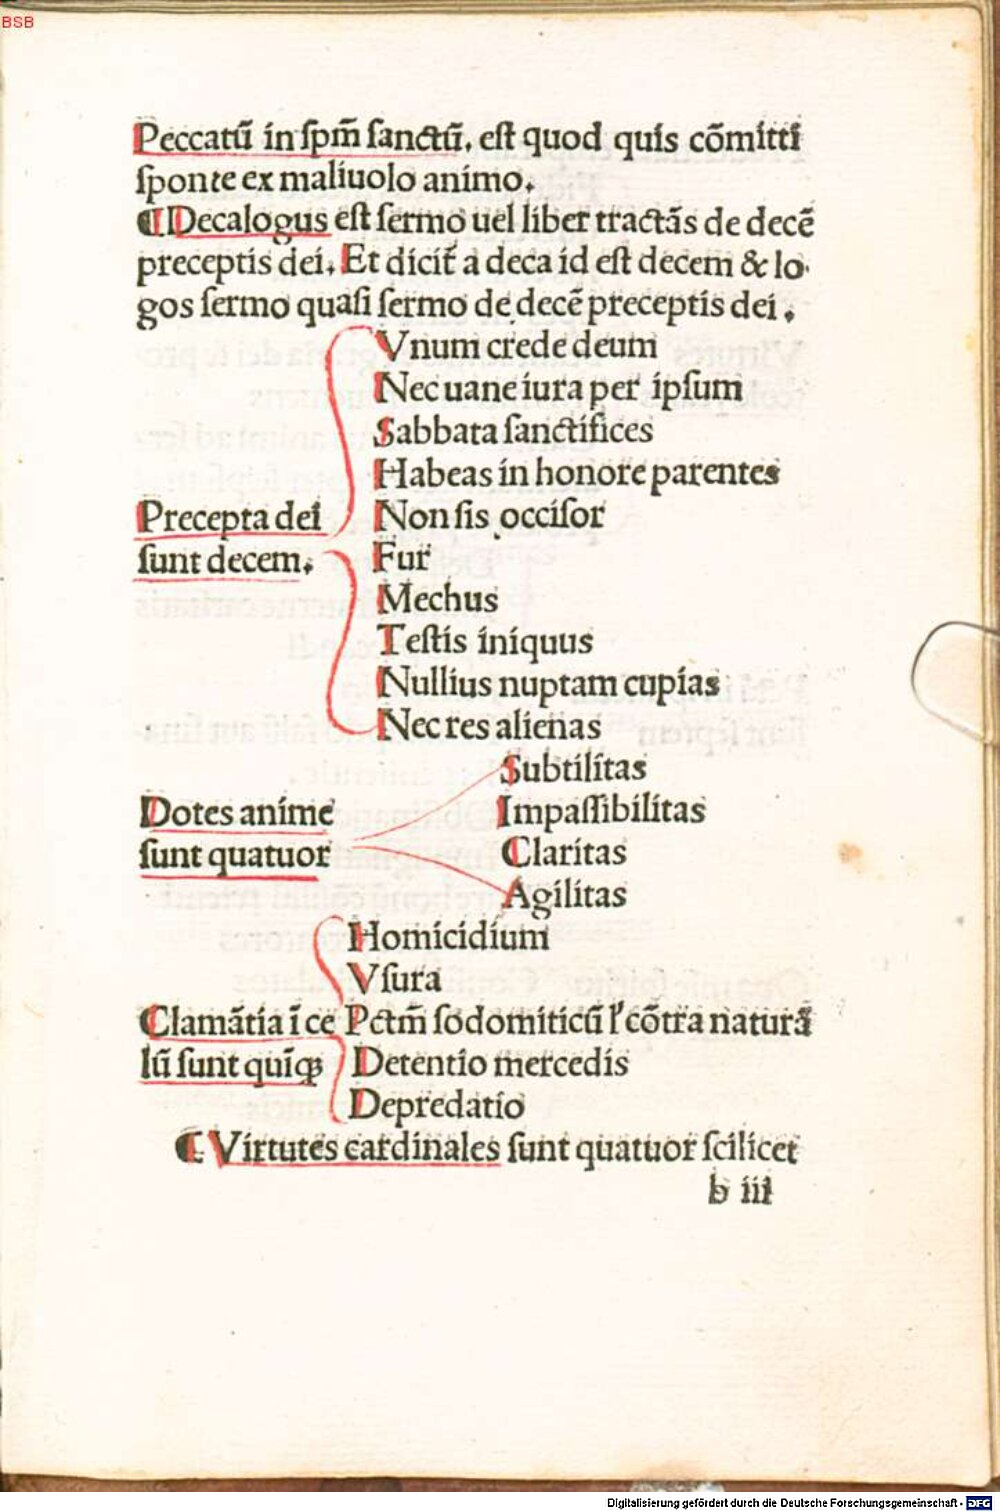 BSB
Peccatū in sp̄m sanctū, est quod quis cōmitti
sponte ex maliuolo animo.
¶ Decalogus est sermo uel liber tractās de decē
preceptis dei. Et dicit̄ a deca id est decem & lo-
gos sermo quasi sermo de decē preceptis dei.
Vnum crede deum
Nec uane iura per ipsum
Sabbata sanctifices
Habeas in honore parentes
Precepta dei Non sis occisor
sunt decem. Fur
Mechus
Testis iniquus
Nullius nuptam cupias
Nec res alienas
Subtilitas
Dotes anime Impassibilitas
sunt quatuor Claritas
Agilitas
Homicidium
Vsura
Clamātia ī ce Pctm̄ sodomiticū l' cōtra naturā
lū sunt quīqꝫ Detentio mercedis
Depredatio
¶ Virtutes cardinales sunt quatuor scilicet
b iii
Digitalisierung gefördert durch die Deutsche Forschungsgemeinschaft - DFG